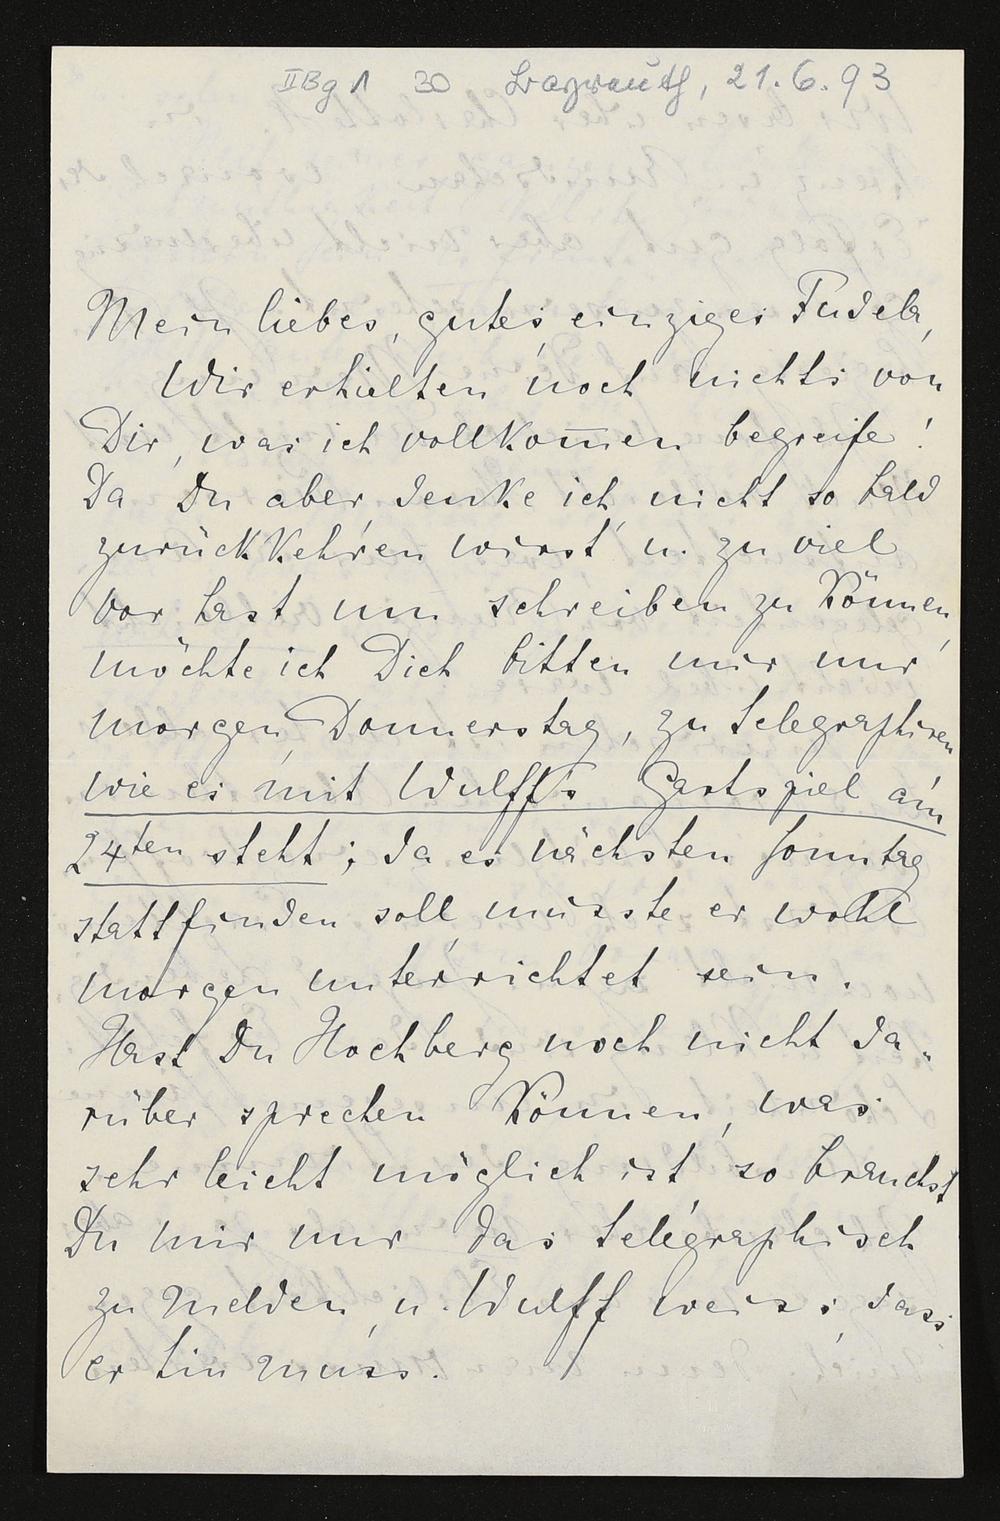 II Bg 1 30 Bayreuth, 21.6.93
Mein liebes, gutes, einziges Fudela,
Wir erhielten noch nichts von
Dir, was ich vollkom̄en begreife!
Da Du aber denke ich nicht so bald
zurückkehren wirst u. zu viel
vor hast um schreiben zu können,
möchte ich Dich bitten mir nur
morgen, Donnerstag, zu telegraphiren
wie es mit Wulff's Gastspiel am
24ten steht; da es nächsten Sonntag
stattfinden soll, müsste er wohl
morgen unterrichtet sein.
Hast Du Hochberg noch nicht da-
rüber sprechen können, was
sehr leicht möglich ist, so brauchst
Du mir nur das telegraphisch
zu melden, u. Wulff weiss, dass
er hin muss.